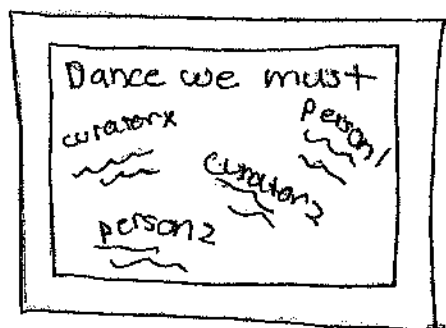 Dance we must
curator x
person 1
curator 2
person 2